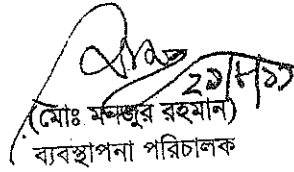 ২৯/৮/১১
(মোঃ মনজুর রহমান)
ব্যবস্থাপনা পরিচালক